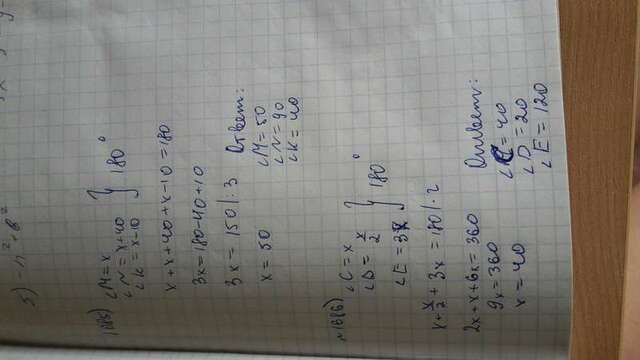 5) -n² + b²
1685)
∠M = x
∠N = x+40
∠K = x-10
} 180°
x + x + 40 + x - 10 = 180
3x = 180 - 40 + 10
3x = 150 | : 3
x = 50
Ответ:
∠M = 50
∠N = 90
∠K = 40
№1686)
∠C = x
∠D = x/2
∠E = 3x
} 180°
x + x/2 + 3x = 180 | · 2
2x + x + 6x = 360
9x = 360
x = 40
Ответ:
∠C = 40
∠D = 20
∠E = 120